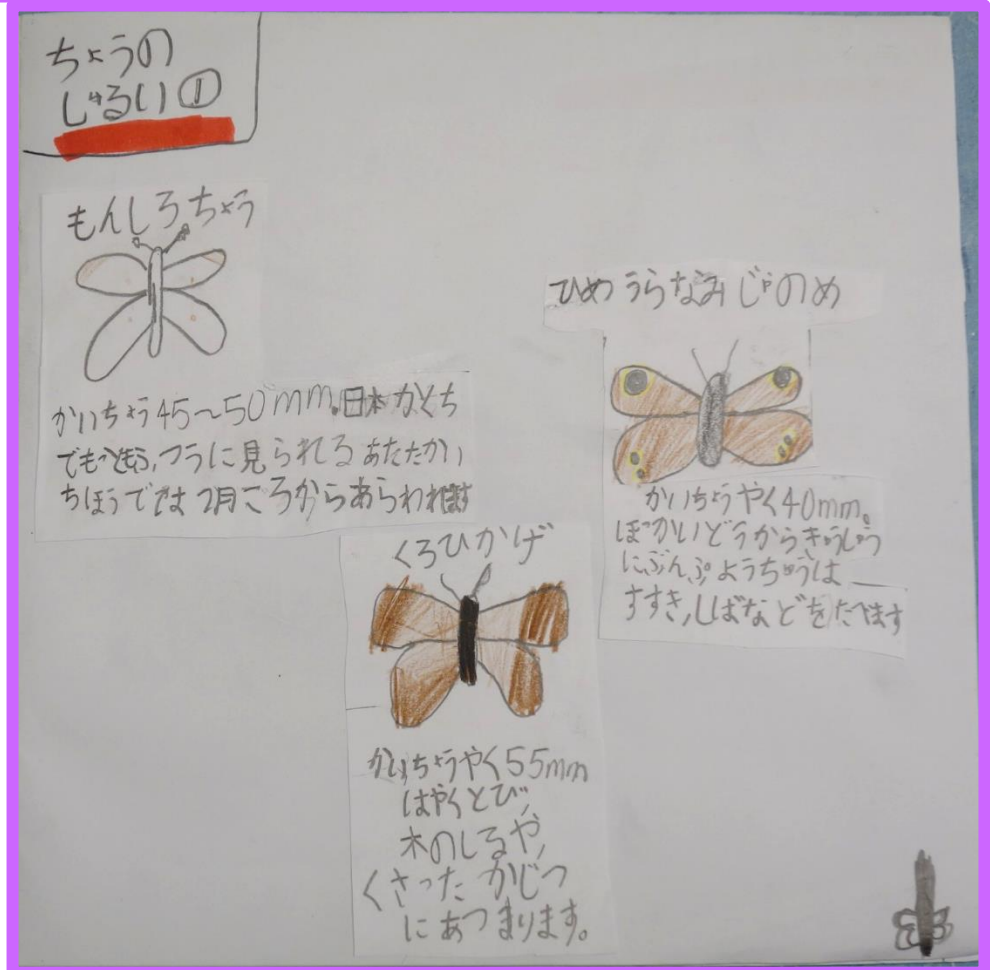 ちょうの
しゅるい①
もんしろちょう
かいちょう45~50mm。日本かくち
でもっともふつうに見られるあたたかい
ちほうでは2月ころからあらわれます
ひめうらなみじゃのめ
かいちょうやく40mm。
ほっかいどうからきゅうしゅう
にぶんぷようちゅうは
すすき,しばなどをたべます
くろひかげ
かいちょうやく55mm
はやくとび,
木のしるや,
くさったかじつ
にあつまります。